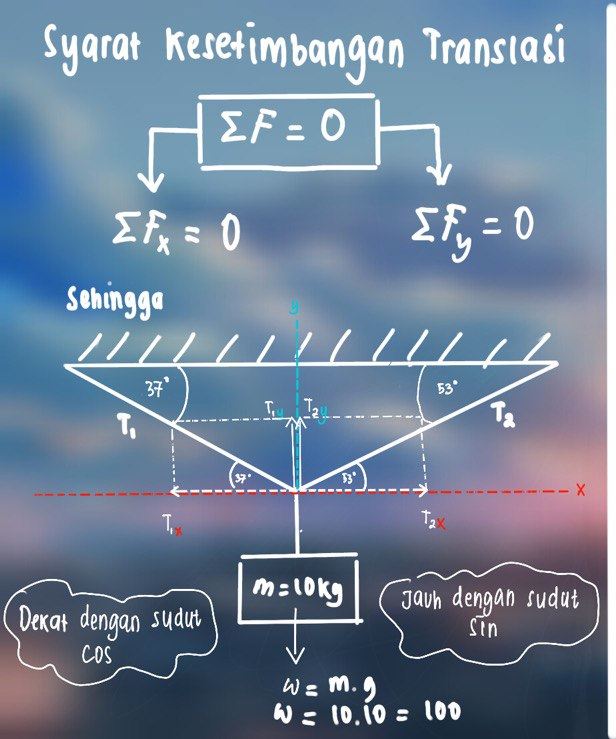 Syarat Kesetimbangan Translasi
ΣF = 0
ΣFx = 0
ΣFy = 0
Sehingga
y
37°
53°
T1
T1y
T2y
T2
37°
53°
x
T1x
T2x
m = 10 kg
Dekat dengan sudut
cos
Jauh dengan sudut
sin
w = m.g
w = 10.10 = 100